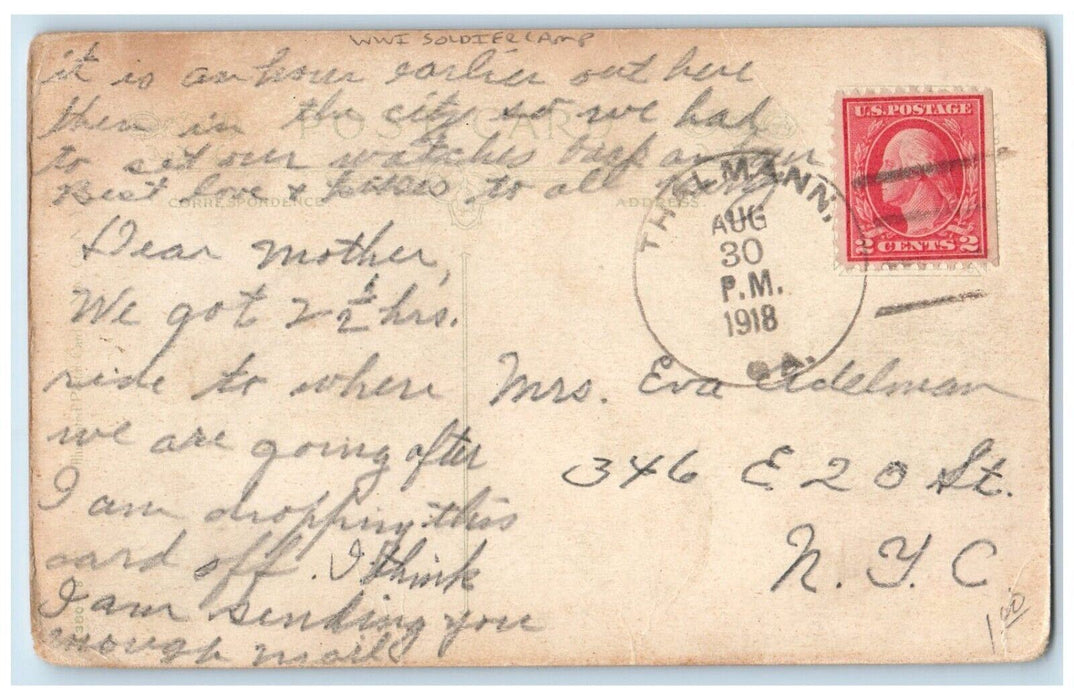 WWI SOLDIER CAMP
it is an hour earlier out here
then in the city so we had
to set our watches back an hour
Best love & kisses to all
POST CARD
CORRESPONDENCE
ADDRESS
Dear Mother,
We got 2 1/2 hrs.
ride to where
we are going after
I am dropping this
card off. I think
I am sending you
enough mail
THALMANN,
AUG
30
P.M.
1918
GA.
U.S. POSTAGE
2 CENTS 2
Mrs. Eva Adelman
346 E 20 St.
N. Y. C
1.00